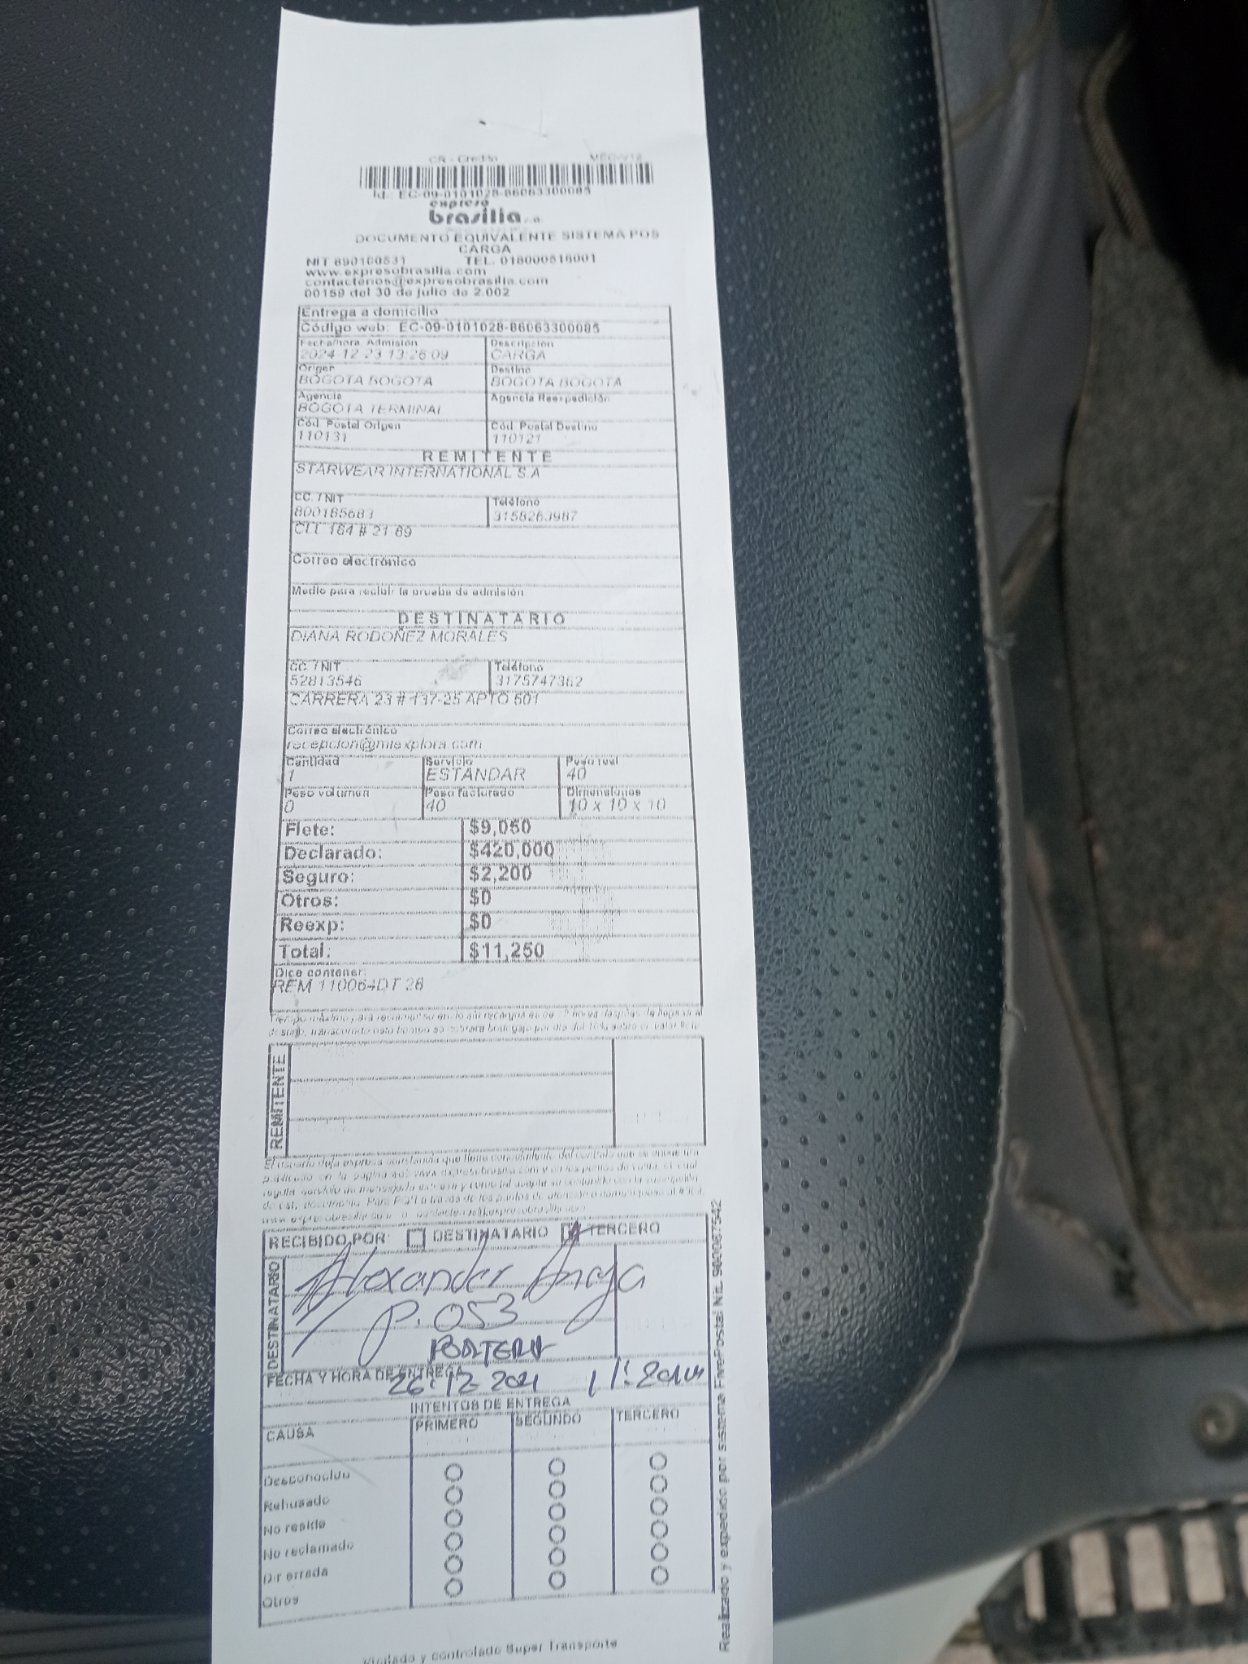 CR - Credito
Id.: EC-09-0101028-86063300085
expreso
brasilia s.a.
DOCUMENTO EQUIVALENTE SISTEMA POS
CARGA
NIT 890100531 TEL. 018000518001
www.expresobrasilia.com
contactenos@expresobrasilia.com
00159 del 30 de julio de 2.002
Entrega a domicilio
Código web: EC-09-0101028-86063300085
Fecha/hora Admisión Descripción
2024-12-23 13:26:09 CARGA
Origen Destino
BOGOTA BOGOTA BOGOTA BOGOTA
Agencia Agencia Reexpedición
BOGOTA TERMINAL
Cód. Postal Origen Cód. Postal Destino
110131 110121
REMITENTE
STARWEAR INTERNATIONAL S.A
CC. / NIT Teléfono
800185683 3158263987
CLL 164 # 21 69
Correo electrónico
Medio para recibir la prueba de admisión
DESTINATARIO
DIANA RODOÑEZ MORALES
CC. / NIT Teléfono
52813546 3175747362
CARRERA 23 # 137-25 APTO 501
Correo electrónico
Cantidad Servicio Peso real
1 ESTANDAR 40
Peso volumen Peso facturado Dimensiones
0 40 10 x 10 x 10
Flete: $9,050
Declarado: $420,000
Seguro: $2,200
Otros: $0
Reexp: $0
Total: $11,250
Dice contener:
REM 110064DT 26
REMITENTE
RECIBIDO POR: DESTINATARIO TERCERO
DESTINATARIO
Alexander Anaya
P. 053
FECHA Y HORA DE ENTREGA
26-12-2024 11:20am
INTENTOS DE ENTREGA
CAUSA PRIMERO SEGUNDO TERCERO
Desconocido
Rehusado
No reside
No reclamado
Dir errada
Otros
Realizado y expedido por sistema FivePostal Nit. 900067542
Vigilado y controlado Super Transporte